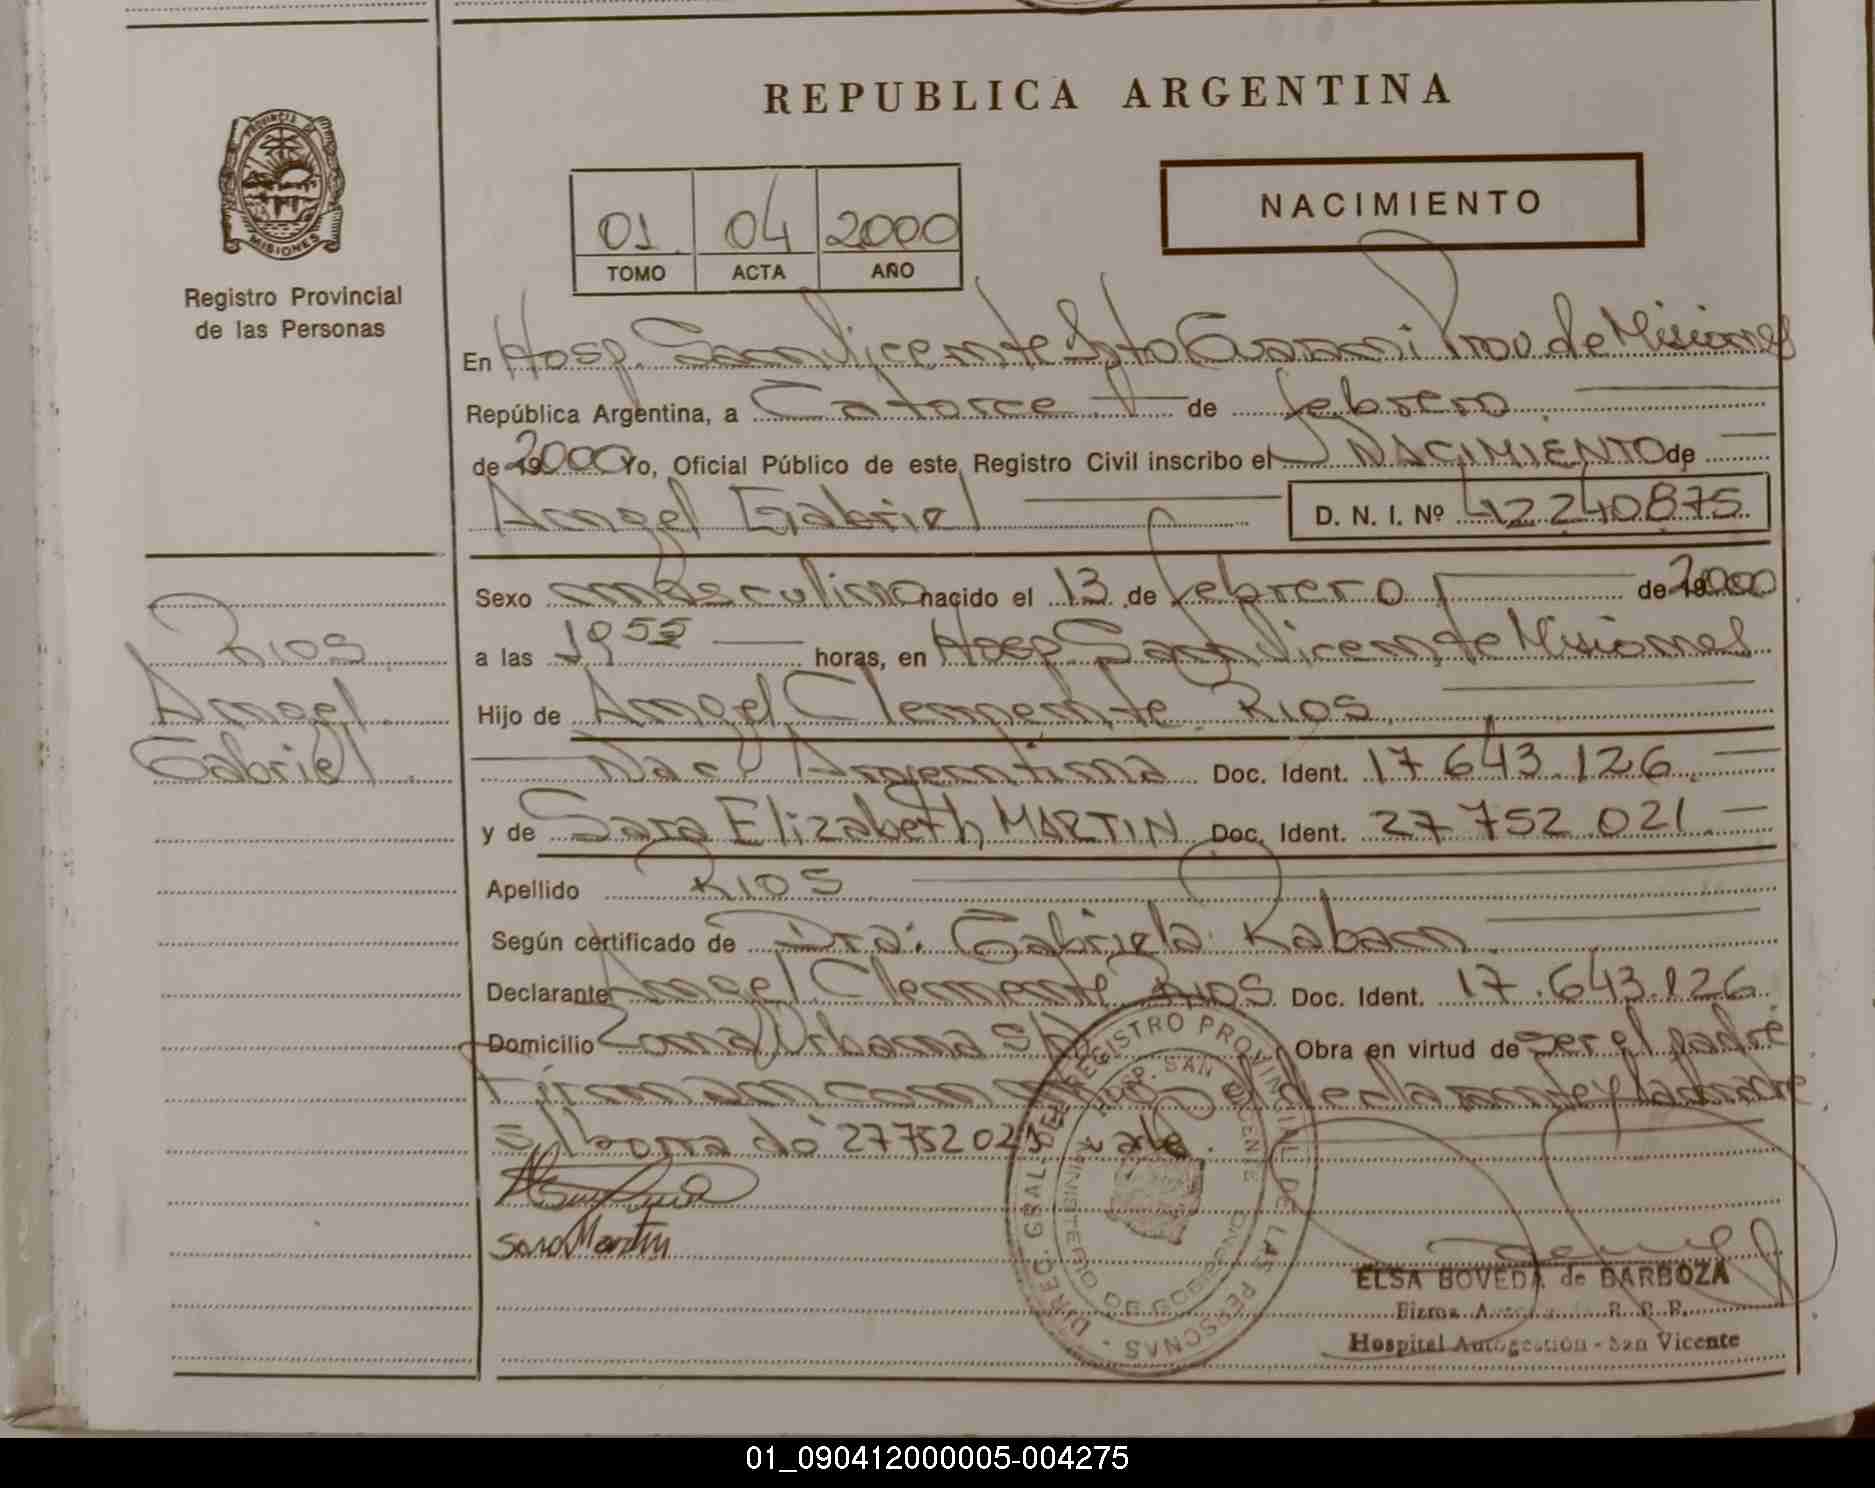 REPUBLICA ARGENTINA
PROVINCIA DE
MISIONES
Registro Provincial
de las Personas
01 04 2000
TOMO ACTA AÑO
NACIMIENTO
En Hosp. San Vicente Dpto Guarani Prov. de Misiones
República Argentina, a Catorce de febrero
de 2000 Yo, Oficial Público de este Registro Civil inscribo el NACIMIENTO de
Angel Gabriel D. N. I. Nº 42240875
Sexo masculino nacido el 13 de febrero de 2000
a las 19 55 horas, en Hosp. San Vicente Misiones
Hijo de Angel Clemente RIOS
Nac. Argentina Doc. Ident. 17 643.126
y de Sara Elizabeth MARTIN Doc. Ident. 27 752 021
Apellido RIOS
Según certificado de Dra: Gabriela Raban
Declarante Angel Clemente RIOS Doc. Ident. 17.643.126
Domicilio Zona Urbana s/n Obra en virtud de ser el padre
Firman conmigo el declarante y la madre
E/ borrado 27752021 vale.
Rios
Angel
Gabriel
Sara Martin
DIREC. GRAL. DEL REGISTRO PROVINCIAL DE LAS PERSONAS
HOSP. SAN VICENTE
MINISTERIO DE GOBIERNO
ELSA BOVEDA de BARBOZA
Firma R. P. P.
Hospital Autogestión - San Vicente
01_090412000005-004275